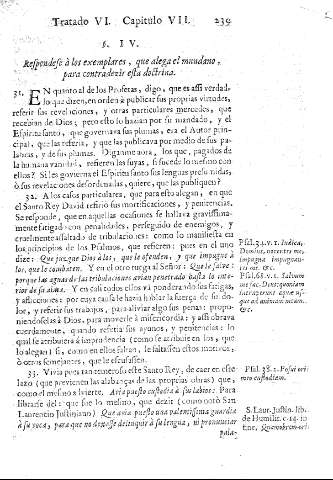 Tratado VI. Capitulo VII. 239
§. IV.
Respondese à los exemplares, que alega el mundano,
para contradezir esta doctrina.
31. EN quanto al de los Profetas, digo, que es assi verdad,
lo que dizen, en orden à publicar sus propias virtudes,
referir sus revelaciones, y otras particulares mercedes, que
recebian de Dios; pero esto lo hazian por su mandado, y el
Espiritu santo, que governava sus plumas, era el Autor prin-
cipal, que las referia, y que las publicava por medio de sus pa-
labras, y de sus plumas. Diganme aora, los que, pagados de
la humana vanidad, refieren las suyas, si sucede lo mesmo con
ellos? Si les governa el Espiritu santo sus lenguas presumidas,
ò sus revelaciones desordenadas, quiere, que las publiquen?
32. A los casos particulares, que para esto alegan, en que
el Santo Rey David refirió sus mortificaciones, y penitencias.
Se responde, que en aquellas ocasiones se hallava gravissima-
mente fatigado con penalidades, perseguido de enemigos, y
cruelmente assaltado de tribulaciones: como lo manifiesta en
los principios de los Psalmos, que refieren: pues en el uno
dize: Que juzgue Dios à los, que le ofenden, y que impugne à
los, que le combaten. Y en el otro ruega al Señor: Que le salve:
porque las aguas de las tribulaciones avian penetrado hasta lo in-
terior de su alma. Y en casi todos ellos và ponderando sus fatigas,
y aflicciones: por cuya causa le hazia hablar la fuerça de su do-
lor, y referir sus trabajos, para aliviar algo sus penas: propo-
niendoselas à Dios, para moverle à misericordia; y assi obrava
acordadamente, quando referia sus ayunos, y penitencias: lo
qual se atribuiera à imprudencia (como se atribuie en los, que
lo alegan) si, como en ellos faltan, le faltassen estos motivos,
ò otros semejantes, que le escusassen.
33. Vivia pues tan temeroso este Santo Rey, de caer en este
lazo (que previenen las alabanças de las propias obras) que,
como el mesmo advierte. Avia puesto custodia à sus labios: Para
librarse del: que fue lo mesmo, que dezir (como notó San
Laurencio Justiniano) Que avia puesto una valentissima guardia
à su boca, para que no dexasse delinquir à su lengua, ni pronunciar
pala-
Psal. 34. v. 1. Iudica,
Domine, nocentes me,
impugna impugnan-
tes me. &c.
Psal. 68. v. 1. Salvum
me fac, Deus: quoniam
intraverunt aquæ us-
que ad animam meam.
&c.
Psal. 38. 1. Posui ori
meo custodiam.
S. Laur. Justin. lib.
de Humilit. c. 14. in-